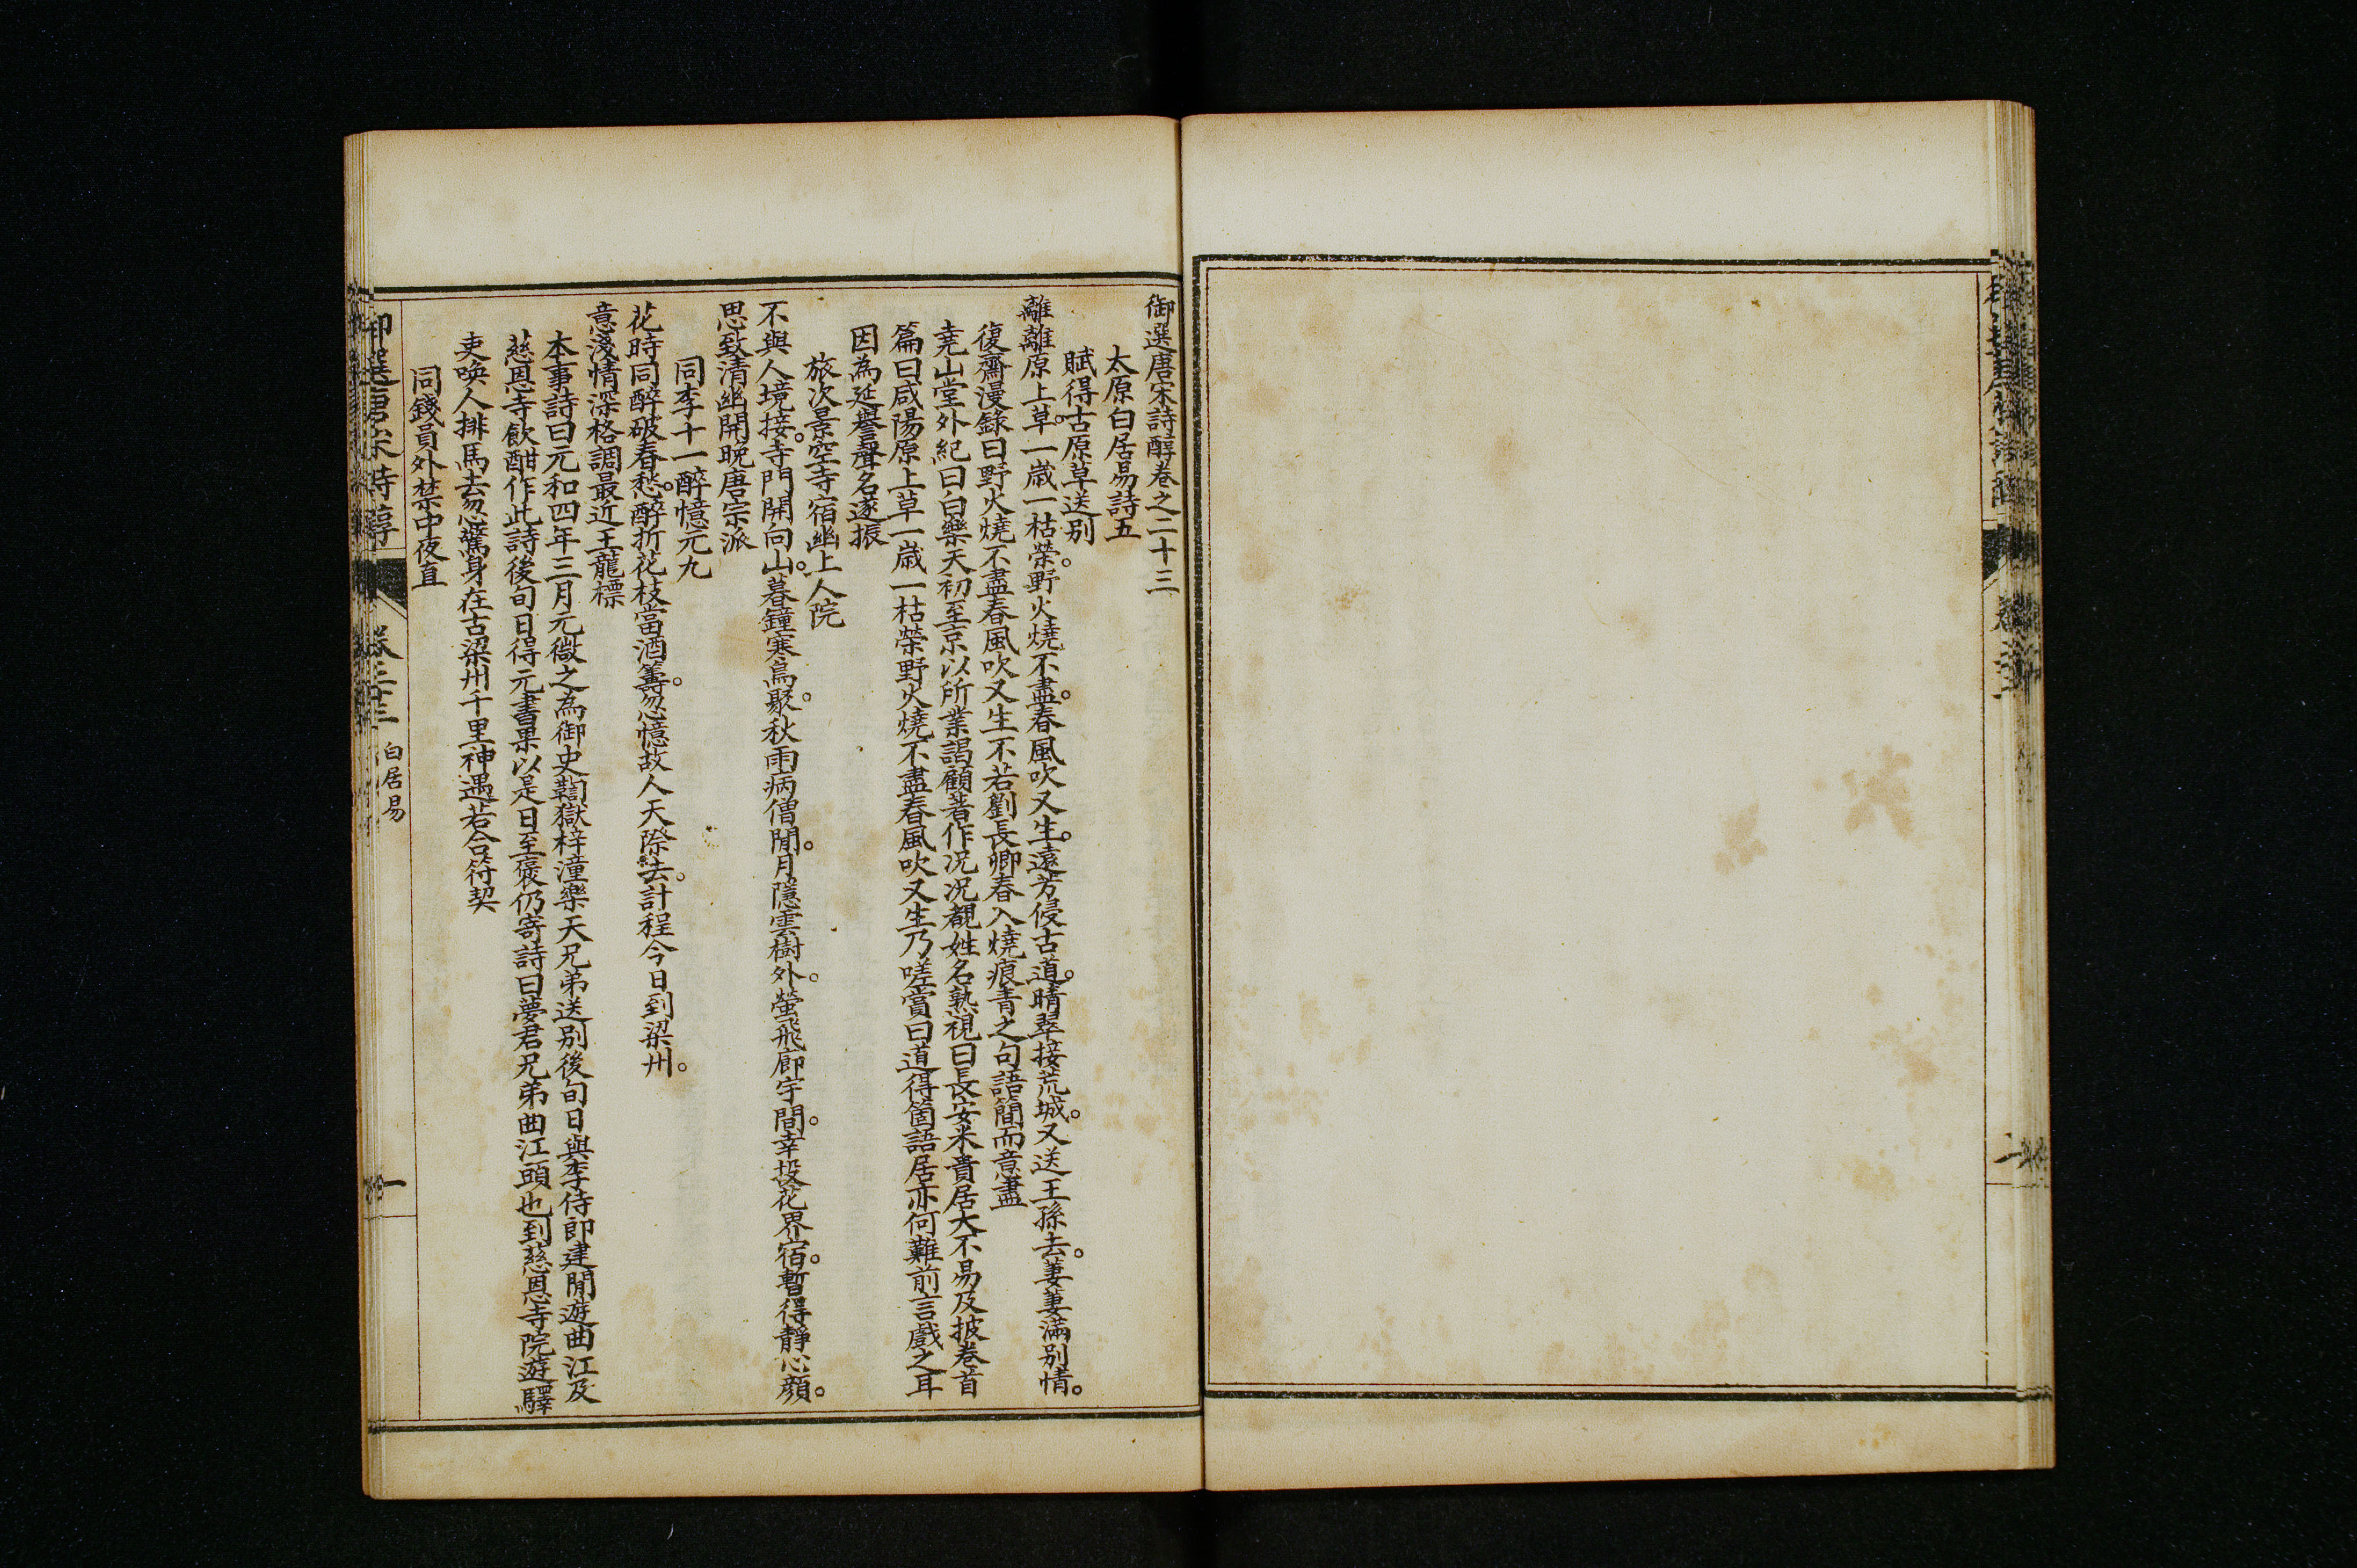 御選唐宋詩醇卷之二十三
太原白居易詩五
賦得古原草送别
離離原上草。一歲一枯榮。野火燒不盡。春風吹又生。遠芳侵古道。晴翠接荒城。又送王孫去。萋萋滿别情。
復齋漫錄曰野火燒不盡春風吹又生不若劉長卿春入燒痕青之句語簡而意盡
堯山堂外紀曰白樂天初至京以所業謁顧著作况况覩姓名熟視曰長安米貴居大不易及披卷首
篇曰咸陽原上草一歲一枯榮野火燒不盡春風吹又生乃嗟賞曰道得箇語居亦何難前言戲之耳
因為延譽聲名遂振
旅次景空寺宿幽上人院
不與人境接。寺門開向山。暮鐘寒鳥聚。秋雨病僧閒。月隱雲樹外。螢飛廊宇間。幸投花界宿。暫得靜心顏。
思致清幽開晚唐宗派
同李十一醉憶元九
花時同醉破春愁。醉折花枝當酒籌。忽憶故人天際去。計程今日到梁州。
意淺情深格調最近王龍標
本事詩曰元和四年三月元微之為御史鞫獄梓潼樂天兄弟送别後旬日與李侍郎建閒遊曲江及
慈恩寺飲酣作此詩後旬日得元書果以是日至褒仍寄詩曰夢君兄弟曲江頭也到慈恩寺院遊驛
吏喚人排馬去忽驚身在古梁州千里神遇若合符契
同錢員外禁中夜直
御選唐宋詩醇
卷二十三
白居易
一